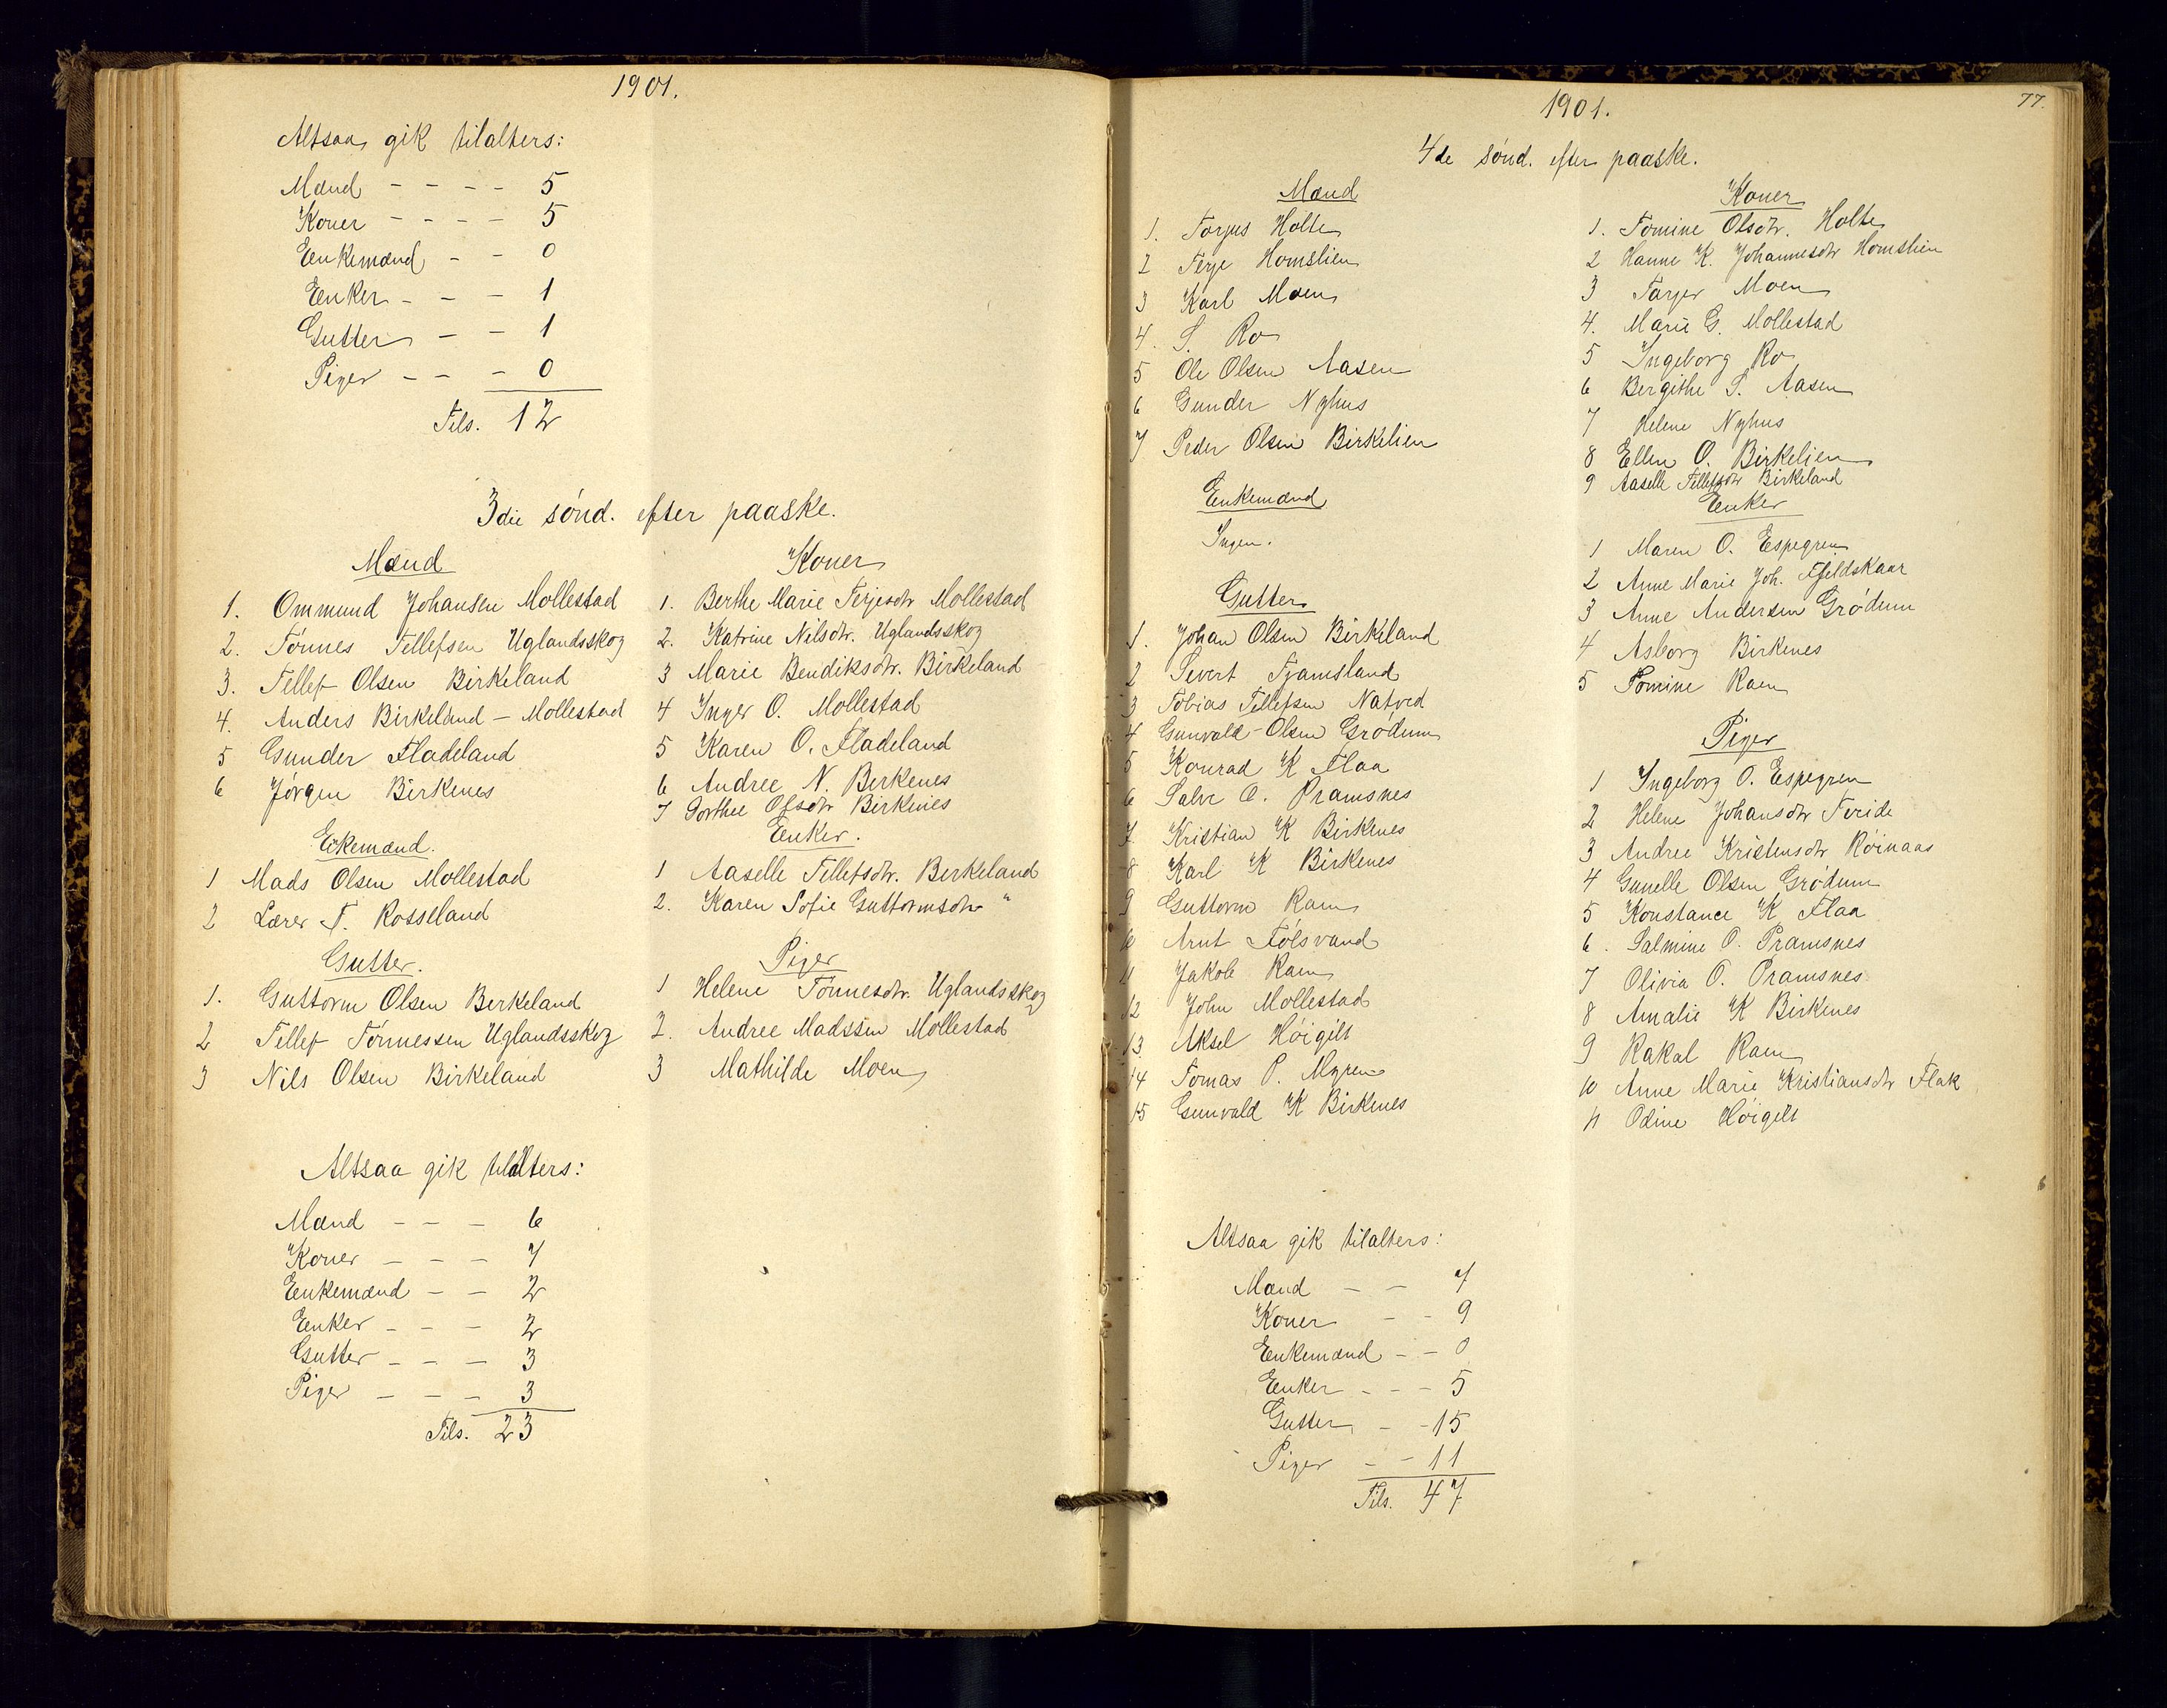 1901.
Altsaa gik tilalters:
Mænd - - - - 5
Koner - - - - 5
Enkemænd - - 0
Enker - - - 1
Gutter - - 1
Piger - - - 0
Tils. 12
3die sønd. efter paaske.
Mænd
1. Ommund Johansen Mollestad
2. Tønnes Tellefsen Uglandsskog
3. Tellef Olsen Birkeland
4. Anders Birkeland - Mollestad
5 Gunder Fladeland
6 Jørgen Birkenes
Ekemænd.
1 Mads Olsen Mollestad
2 Lærer T. Rosseland
Gutter.
1. Guttorm Olsen Berkeland
2 Tellef Tønnessen Uglandsskog
3 Nils Olsen Birkeland
Koner
1. Berthe Marie Terjesdtr Mollestad
2. Katrine Nilsdtr. Uglandsskog
3 Marie Bendiksdtr. Birkeland
4 Inger O. Mollestad
5 Karen O. Fladeland
6 Andree N. Berkenes
7 Dorthee Olsdtr Birkenes
Enker.
1 Aaselle Tellefsdtr. Berkeland
2. Karen Sofie Guttormsdtr "
Piger
1 Helene Tønnesdtr. Uglandsskog
2. Andree Madssen Mollestad
3 Mathilde Moen
Altsaa gik tilalters:
Mænd - - - 6
Koner - - - 7
Enkemænd - - 2
Enker - - - 2
Gutter - - - 3
Piger - - - 3
Tils. 23
77.
1901.
4de sønd. efter paaske.
Mænd
1. Torjus Holte
2 Terje Homslien
3 Karl Moen
4. S. Ro
5 Ole Olsen Aasen
6 Gunder Nyhus
7 Peder Olsen Birkelien
Enkemænd
Ingen.
Gutter
1. Johan Olsen Birkeland
2 Severt Tjamsland
3 Tobias Tellefsen Natved
4 Gunvald Olsen Grødum
5 Konrad K Flaa
6 Salve O. Pramsnes
7. Kristian K Birkenes
8 Karl K Birkenes
9 Guttorm Raen
10 Arnt Følsvand
11 Jakob Raen
12 John Mollestad
13. Aksel Høigilt
14 Tomas P. Myren
15 Gunvald K Birkenes
Koner
1. Tomine Olsdtr. Holte
2 Hanne K. Johannesdtr Homslien
3 Tarjer Moen
4. Marie G. Mollestad
5 Ingeborg Ro
6 Bergithe S. Aasen
7 Helene Nyhus
8 Ellen O. Birkelien
9 Aaselle Tellefsdtr Birkeland
Enker
1 Maren O. Espegren
2 Anne Marie Joh. Fjeldskaar
3 Anne Andersen Grødum
4 Asborg Birkenes
5 Tomine Raen
Piger
1 Ingeborg O. Espegren
2 Helene Johansdtr Foride
3 Andree Kristensdtr Røinaas
4 Gunelle Olsen Grødum
5 Konstance K Flaa
6. Salmine O. Pramsnes
7 Olivia O. Pramsnes
8 Amalie K Birkenes
9 Rakal Raen
10 Anne Marie Kristiansdtr Flak
11 Odine Høigilt
Altsaa gik tilalters:
Mænd - - 7
Koner - - 9
Enkemænd - - 0
Enker - - - 5
Gutter - - 15
Piger - - 11
Tils. 47